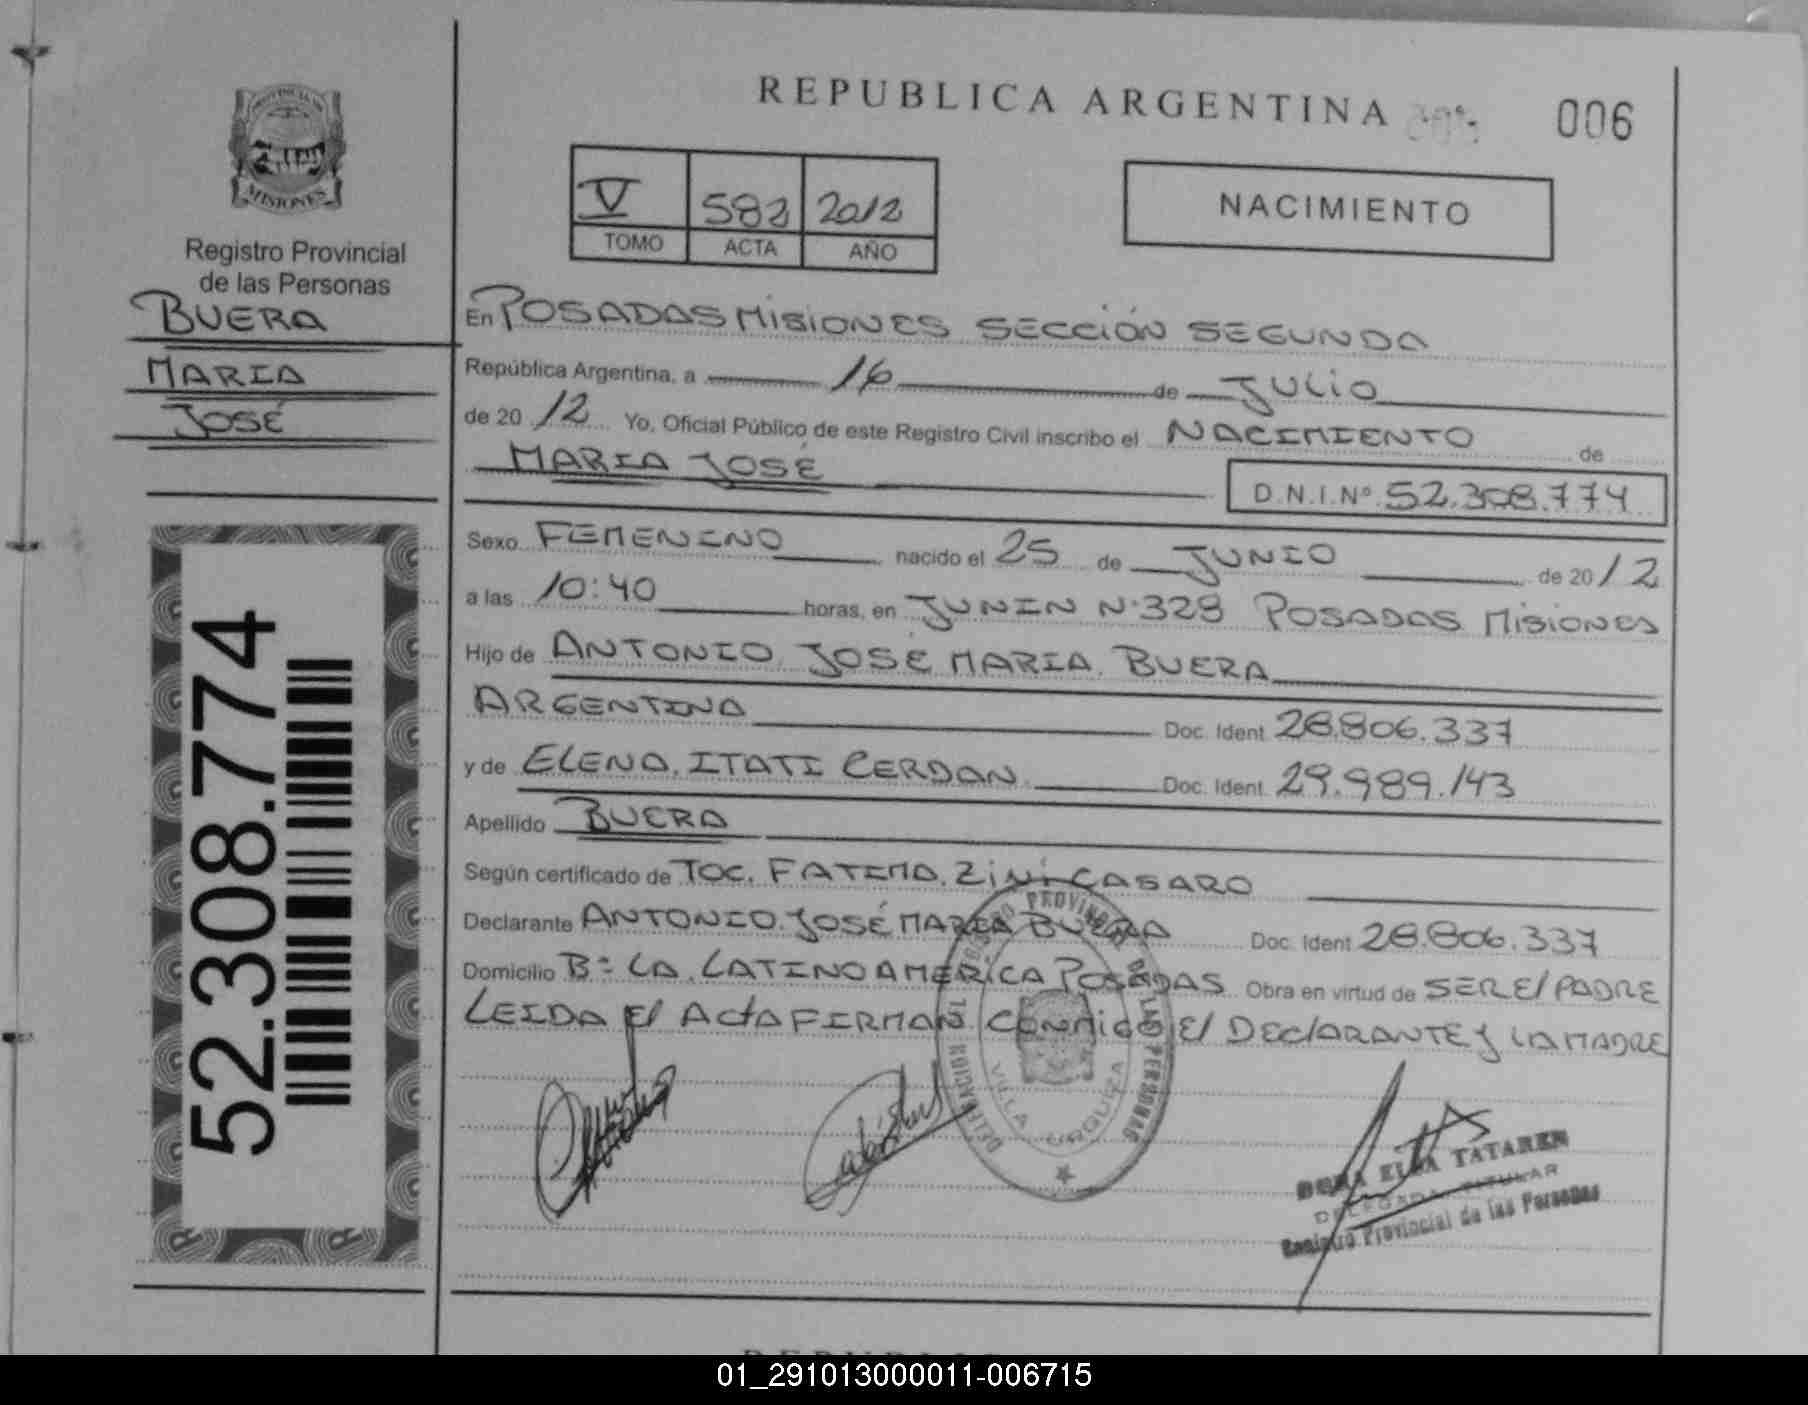 REPUBLICA ARGENTINA
006
PROVINCIA DE
MISIONES
Registro Provincial
de las Personas
BUERA
MARIA
JOSÉ
V 582 2012
TOMO ACTA AÑO
NACIMIENTO
En POSADAS MISIONES SECCIÓN SEGUNDA
República Argentina, a 16 de JULIO
de 2012 Yo, Oficial Público de este Registro Civil inscribo el NACIMIENTO de
MARIA JOSÉ D.N.I.Nº 52.308.774
Sexo FEMENINO nacido el 25 de JUNIO de 2012
a las 10:40 horas, en JUNIN Nº 328 POSADAS MISIONES
Hijo de ANTONIO JOSÉ MARIA BUERA
ARGENTINA Doc. Ident. 28.806.337
y de ELENA ITATI CERDAN Doc. Ident. 29.989.143
Apellido BUERA
Según certificado de TOC. FATIMA ZINI CASARO
Declarante ANTONIO JOSÉ MARIA BUERA Doc. Ident. 28.806.337
Domicilio Bº LA LATINOAMERICA POSADAS Obra en virtud de SER El PADRE
LEIDA El ActA FIRMAN CONMIGO El DEClARANTE y LA MADRE
52.308.774
REGISTRO PROVINCIAL DE LAS PERSONAS
DELEGACION
VILLA URQUIZA
ELBA TATAREN
DELEGADA TITULAR
Registro Provincial de las Personas
01_291013000011-006715